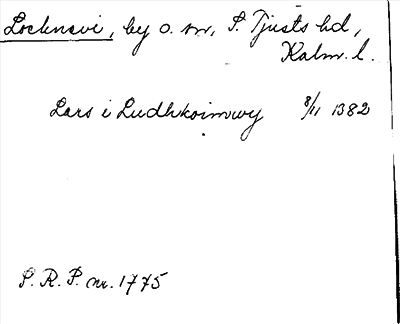 Locknevi, by o. sn, S. Tjusts hd,
Kalm. l.
Lars i Ludhkoinwy 8/11 1382
S. R. P. nr. 1775